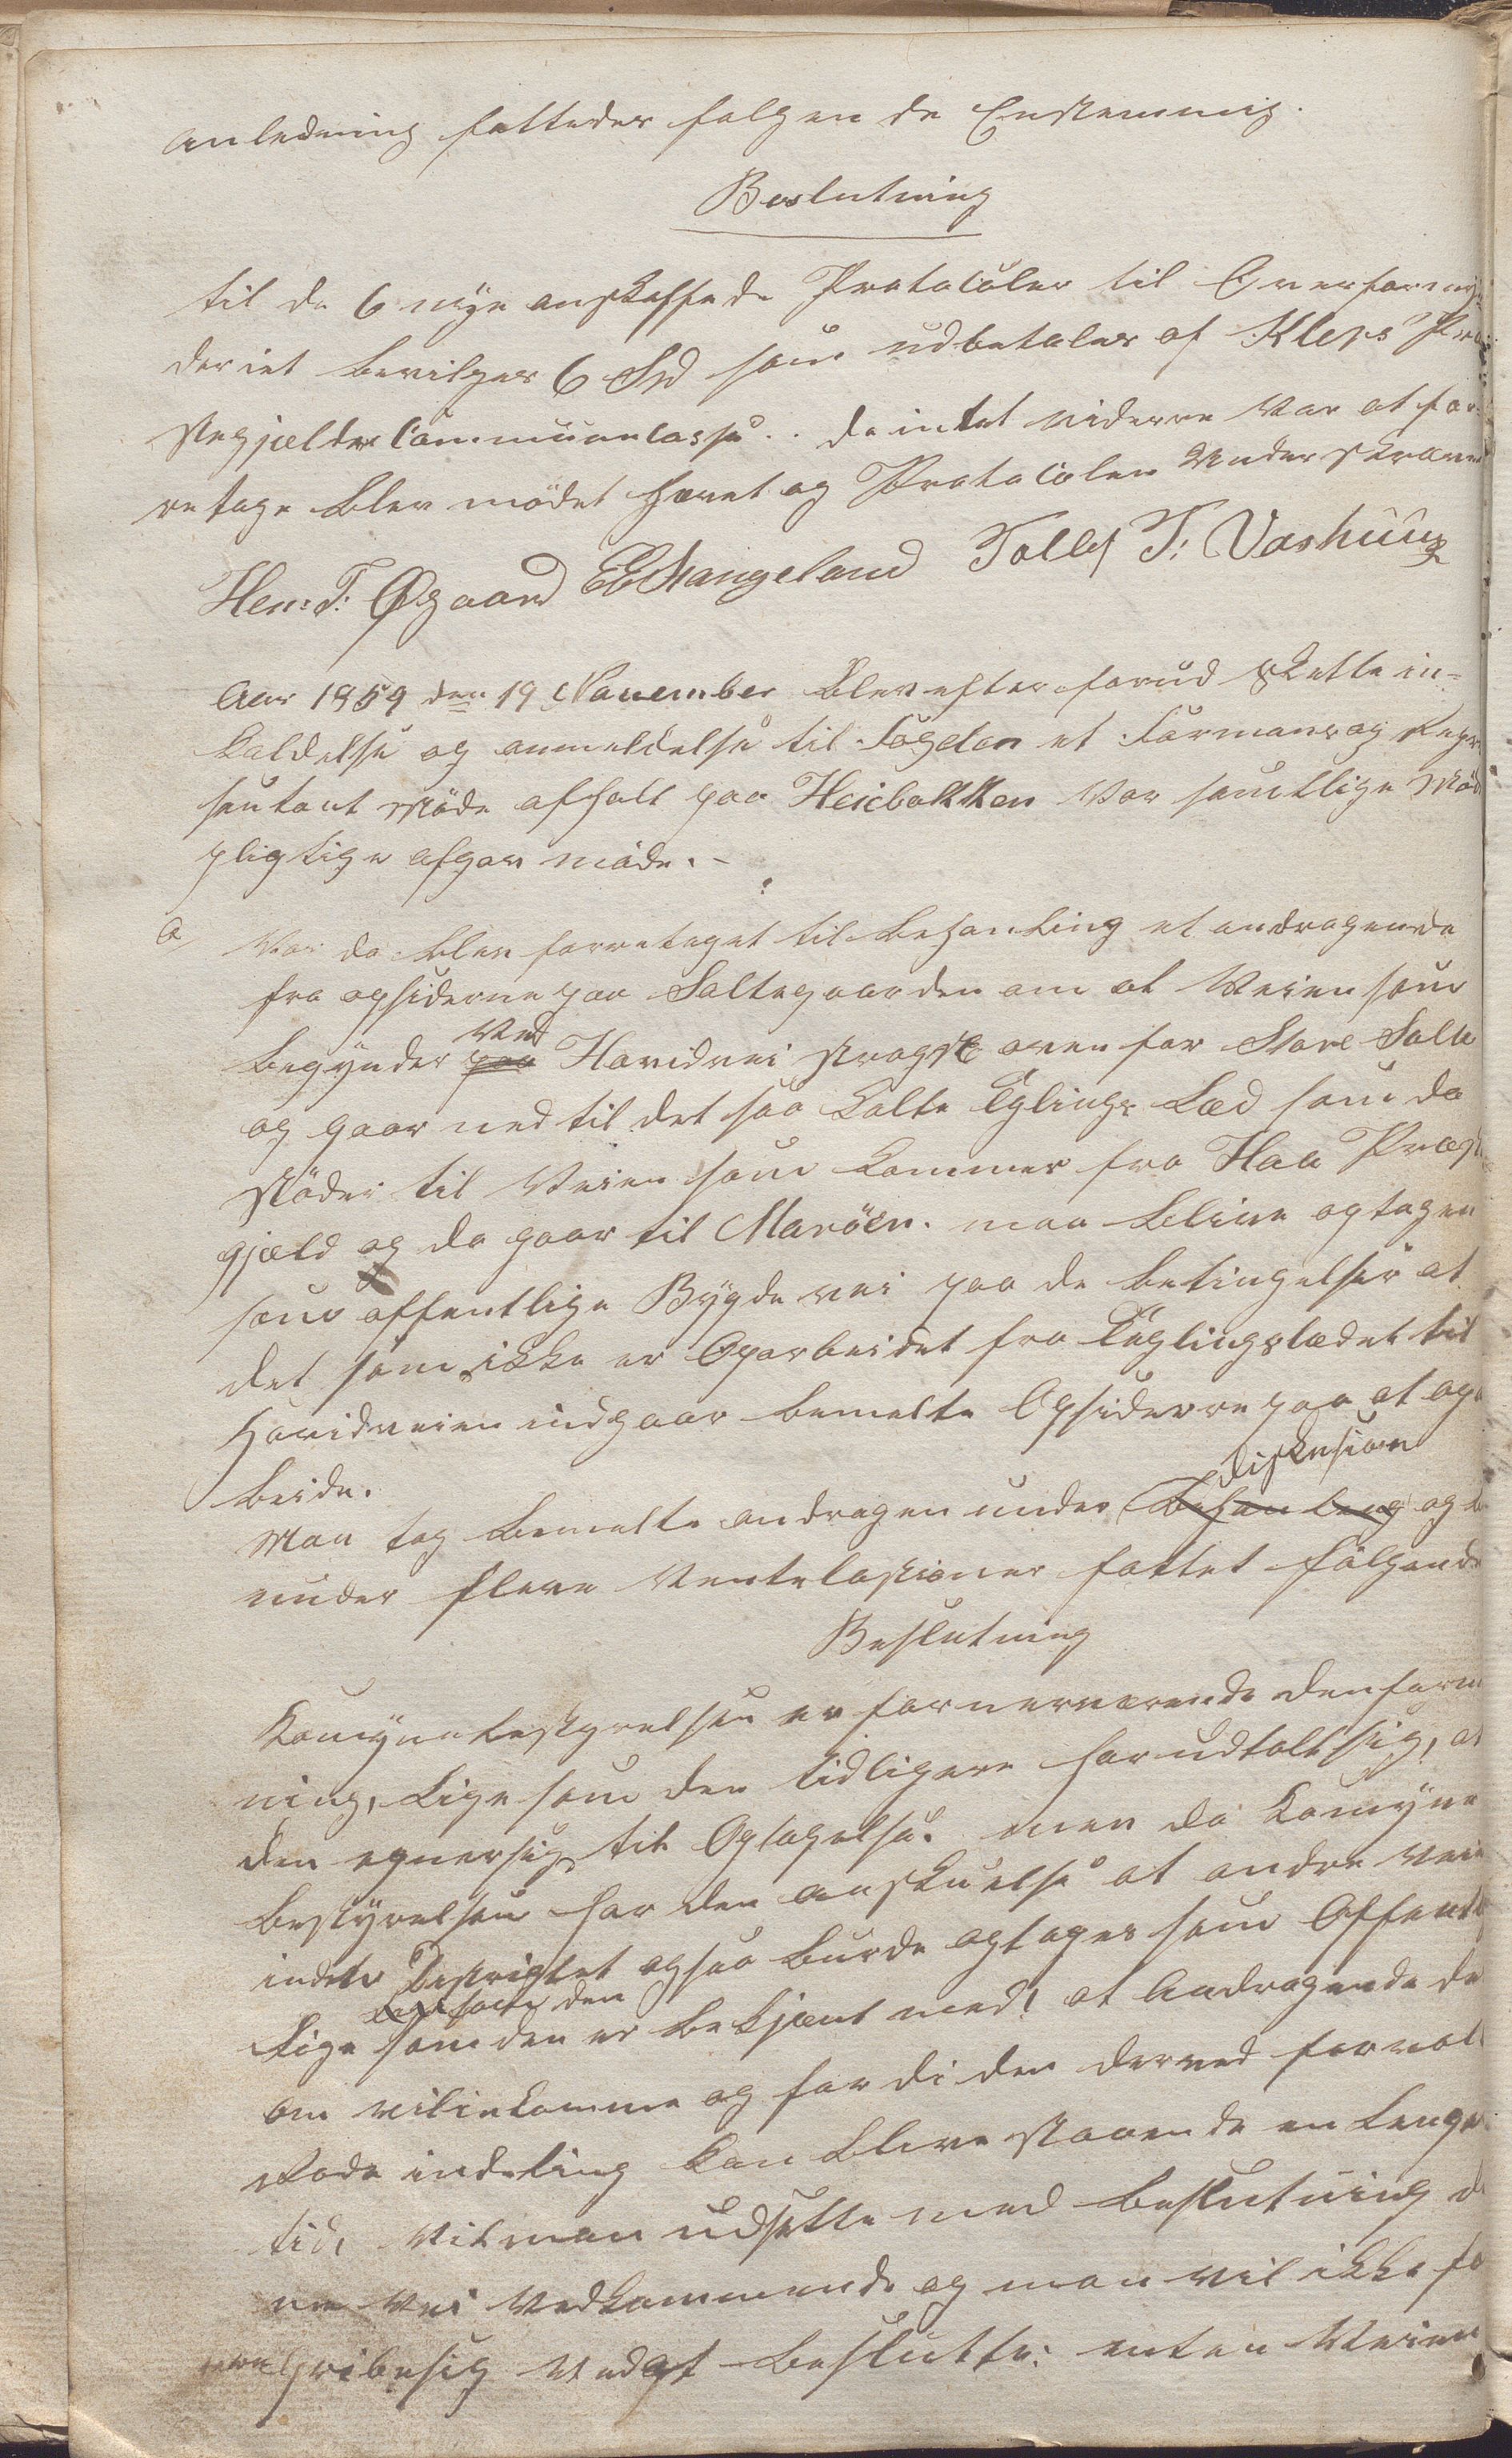 anledning fattedes følgende Enstemmig.
Beslutning
til de 6 nye anskaffede Protocoler til Overformyn
deriet bevilges 6 Spd som udbetales af Kleps Præ
stegjelds Communecasse.. da intet videre var at for
retage blev mødet hævet og Protocolen Underskreven
Hen: T: Øgaard EE Stangeland Tollef T: Vashuus
Aar 1859 den 19 November blev efter forud skette in-
kaldelse og anmeldelse til Fogden et Formans og Repr
sentant Møde afholt paa Heiebakken Var samtlige Mød
pligtige afgav møde.-
a
Var da blev forretaget til behanling et andragende
fra opsiderne paa Saltegaarden om at Veien som
begynder paa Ved Hovidvei strags oven for Store Salte
og gaar ned til det saa kalte Eglings Led som da
støder til Veien som kommer fra Haa Præst
gjeld og da gaar til Marøen. maa blive optagen
som offentlige Bygdevei paa de betingelser at
det som ikke er Oparbeidet fra Eeglingsledet til
Hovidveien indgaar bemelte Opsiderre paa at opa
beide.
Man tog bemelte andragen under behanling diskusion og
under flere Ventelasioner fattet følgende
Beslutning
Komynebestyrelsen er fornerværende den form
ning, lige som den tidligere har udtalt sig, at
den egner sig til Optagelse. men da Komyne
bestyrelsen har den anskuelse at andre veie
inden Destriktet ogsaa burde optages som Offentl
lige som den er bekjent med! at Andragende de
om vil inkomme og for di den derved forval
Rode indeling kan blive staaende en lenger
tid, vil man udsette med beslutning d
ne Vei Vedkommende og man vil ikke fo
gribe sig Ved at beslutte: enten Veien